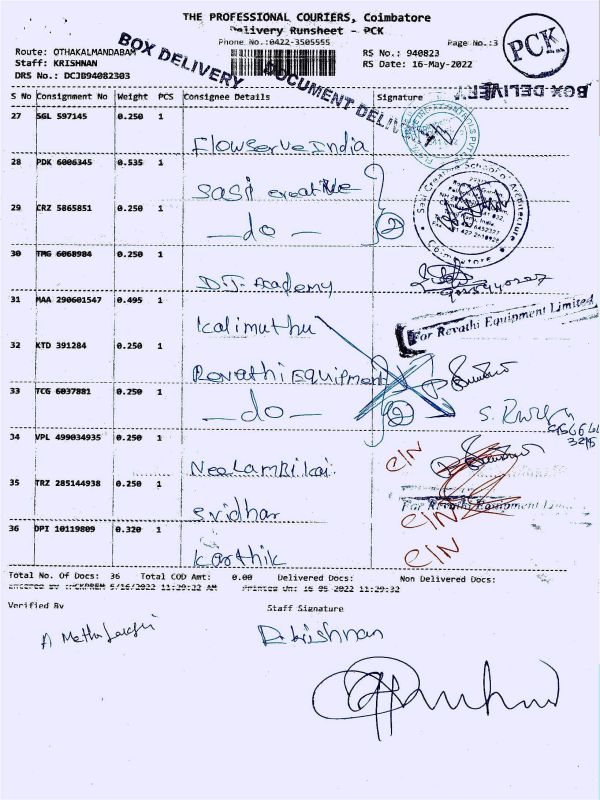 THE PROFESSIONAL COURIERS, Coimbatore
Delivery Runsheet - PCK
Phone No.:0422-3505555
Page No.:3
PCK
Route: OTHAKALMANDABAM
RS No.: 940823
Staff: KRISHNAN
RS Date: 16-May-2022
DRS No.: DCJB94082303
BOX DELIVERY
DOCUMENT DELI
BOX DELIVERY
S No Consignment No Weight PCS Consignee Details Signature
27 SGL 597145 0.250 1
Flowserve India
28 PDK 6006345 0.535 1
Sasi creative
29 CRZ 5865851 0.250 1
-do- 2
Sasi Creative School of Architecture
Coimbatore
30 TMG 6068984 0.250 1
D.J. Academy
31 MAA 290601547 0.495 1
Kalimuthu
For Revathi Equipment Limited
32 KTD 391284 0.250 1
Revathi Equipment
33 TCG 6037881 0.250 1
-do- 2
34 VPL 499034935 0.250 1
Neelambikai C/N
35 TRZ 285144938 1
0.250
For Revathi Equipment Lim
Sridhar C/N
36 DPI 10119809 0.320 1
Karthik C/N
Total No. Of Docs: 36 Total COD Amt: 0.00 Delivered Docs: Non Delivered Docs:
5/16/2022 11:29:32 AM Printed On: 16 05 2022 11:29:32
Verified By Staff Signature
R. Krishnan